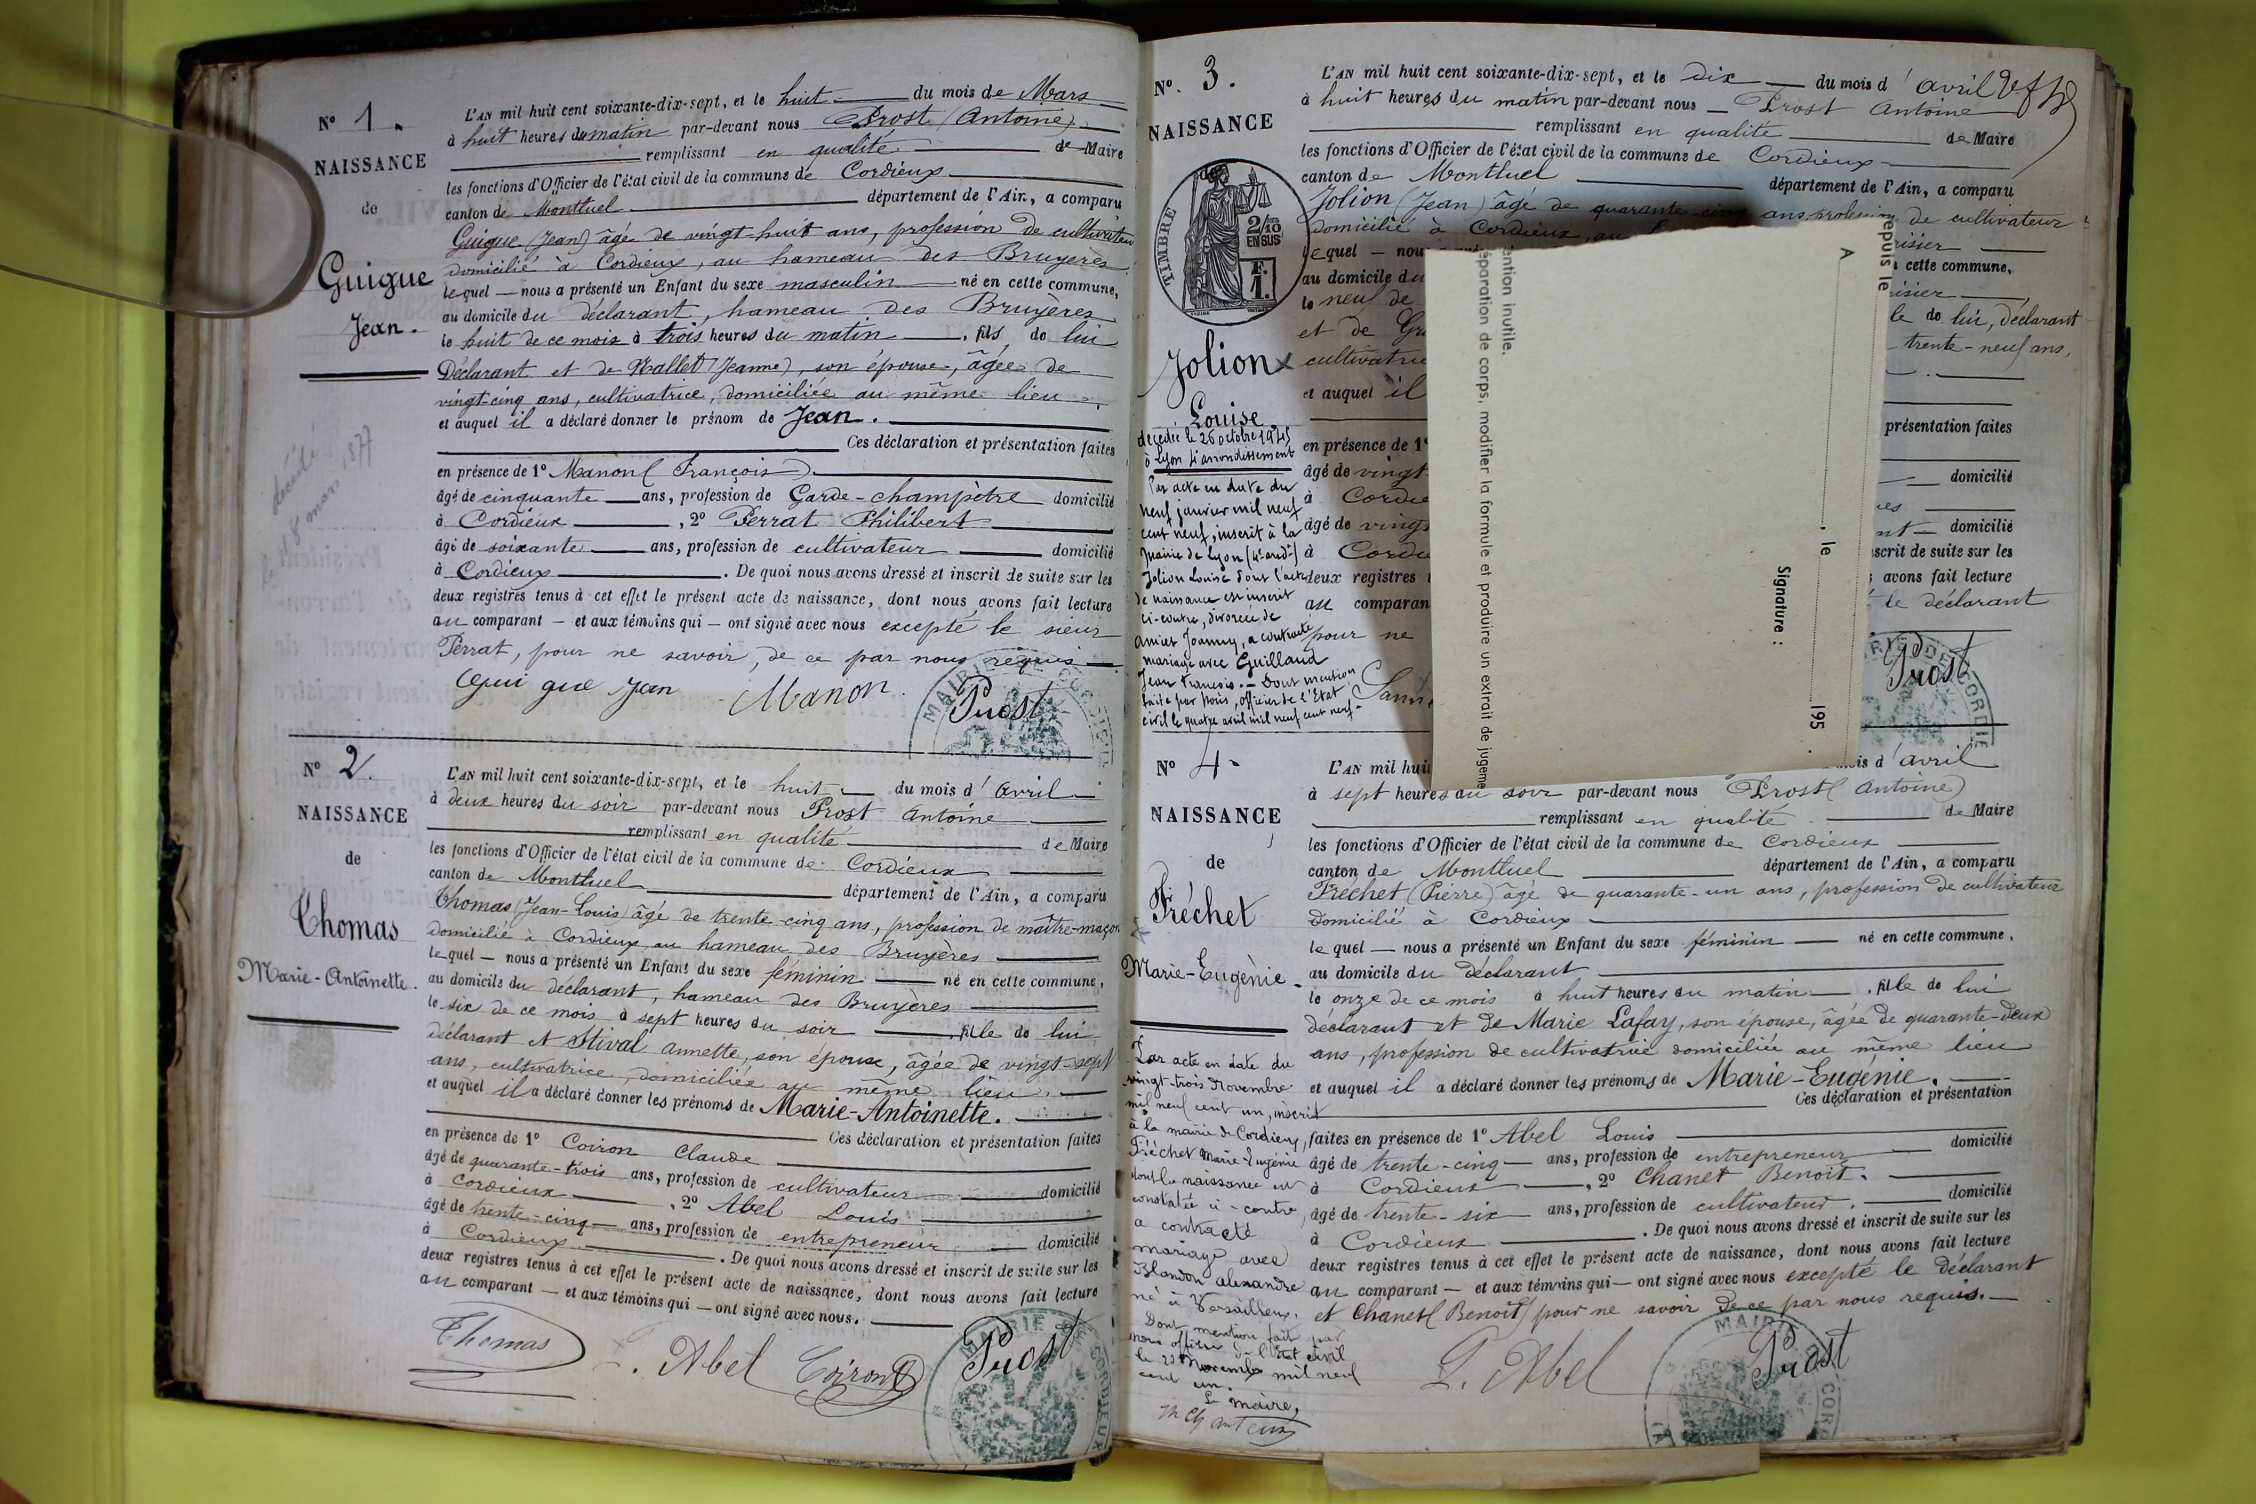 N° 1.
NAISSANCE
de
Guigue
Jean.
décédé
le 8 mars 1877
L'AN mil huit cent soixante-dix-sept, et le huit du mois de Mars
à huit heures du matin par-devant nous Prost (Antoine)
remplissant en qualité de Maire
les fonctions d'Officier de l'état civil de la commune de Cordieux
canton de Montluel département de l'Ain, a comparu
Guigue (Jean) âgé de vingt-huit ans, profession de cultivateur
domicilié à Cordieux, au hameau des Bruyères
lequel — nous a présenté un Enfant du sexe masculin — né en cette commune,
au domicile du déclarant, hameau des Bruyères
le huit de ce mois à trois heures du matin —, fils de lui
Déclarant et de Mallet (Jeanne), son épouse, âgée de
vingt-cinq ans, cultivatrice, domiciliée au même lieu
et auquel il a déclaré donner le prénom de Jean.
Ces déclaration et présentation faites
en présence de 1° Manon (François)
âgé de cinquante ans, profession de Garde-champêtre domicilié
à Cordieux, 2° Perrat Philibert
âgé de soixante ans, profession de cultivateur domicilié
à Cordieux. De quoi nous avons dressé et inscrit de suite sur les
deux registres tenus à cet effet le présent acte de naissance, dont nous avons fait lecture
au comparant — et aux témoins qui — ont signé avec nous excepté le sieur
Perrat, pour ne savoir, de ce par nous requis
Guigue Jean Manon Prost
N° 2.
NAISSANCE
de
Thomas
Marie-Antoinette.
L'AN mil huit cent soixante-dix-sept, et le huit du mois d'avril
à deux heures du soir par-devant nous Prost Antoine
remplissant en qualité de Maire
les fonctions d'Officier de l'état civil de la commune de Cordieux
canton de Montluel département de l'Ain, a comparu
Thomas (Jean-Louis) âgé de trente-cinq ans, profession de maître-maçon
domicilié à Cordieux au hameau des Bruyères
lequel — nous a présenté un Enfant du sexe féminin — né en cette commune,
au domicile du déclarant, hameau des Bruyères
le six de ce mois à sept heures du soir, fille de lui
déclarant et Stival Annette, son épouse, âgée de vingt-sept
ans, cultivatrice, domiciliée au même lieu
et auquel il a déclaré donner les prénoms de Marie-Antoinette.
Ces déclaration et présentation faites
en présence de 1° Coiron Claude
âgé de quarante-trois ans, profession de cultivateur domicilié
à Cordieux, 2° Abel Louis
âgé de trente-cinq ans, profession de entrepreneur domicilié
à Cordieux. De quoi nous avons dressé et inscrit de suite sur les
deux registres tenus à cet effet le présent acte de naissance, dont nous avons fait lecture
au comparant — et aux témoins qui — ont signé avec nous.
Thomas Abel Coiron Prost
N° 3.
NAISSANCE
de
TIMBRE
2/10 EN SUS
F. 1.
Jolion
Louise
décédée le 26 octobre 1945
à Lyon 4e arrondissement
Par acte en date du
neuf janvier mil neuf
cent neuf, inscrit à la
mairie de Lyon (4e arrdt)
Jolion Louise dont l'acte
de naissance est inscrit
ci-contre, divorcée de
Amiet Joanny, a contracté
mariage avec Guilland
Jean François. — Dont mention
faite par Nous, officier de l'Etat
civil le quatre avril mil neuf cent neuf.
L'AN mil huit cent soixante-dix-sept, et le dix du mois d'avril
à huit heures du matin par-devant nous Prost Antoine
remplissant en qualité de Maire
les fonctions d'Officier de l'état civil de la commune de Cordieux
canton de Montluel département de l'Ain, a comparu
Jolion (Jean) âgé de quarante-cinq ans profession de cultivateur
domicilié à Cordieux, au
lequel — nous cette commune,
au domicile du
le neuf de le de lui, déclarant
et de trente-neuf ans,
et auquel il
présentation faites
en présence de 1°
âgé de vingt domicilié
à Cordie
âgé de vingt domicilié
à Cordie scrit de suite sur les
deux registres avons fait lecture
au comparan le déclarant
pour ne
Prost
ention inutile.
éparation de corps, modifier la formule et produire un extrait de jugeme
Signature :
A , le 195 .
epuis le
N° 4.
NAISSANCE
de
Fréchet
Marie-Eugènie.
Par acte en date du
vingt-trois Novembre
mil neuf cent un, inscrit
à la mairie de Cordieux,
Fréchet Marie Eugénie
dont la naissance est
constatée ci-contre,
a contracté
mariage avec
Blandon alexandre
né à Versailleux.
Dont mention fait par
nous officier de l'état civil
le 23 Novembre mil neuf
cent un.
Le maire,
L'AN mil hui is d'avril
à sept heures du soir par-devant nous Prost (Antoine)
remplissant en qualité de Maire
les fonctions d'Officier de l'état civil de la commune de Cordieux
canton de Montluel département de l'Ain, a comparu
Fréchet (Pierre) âgé de quarante-un ans, profession de cultivateur
domicilié à Cordieux
lequel — nous a présenté un Enfant du sexe féminin — né en cette commune,
au domicile du déclarant
le onze de ce mois à huit heures du matin —, fille de lui
déclarant et de Marie Lafay, son épouse, âgée de quarante-deux
ans, profession de cultivatrice domiciliée au même lieu
et auquel il a déclaré donner les prénoms de Marie-Eugénie.
Ces déclaration et présentation
faites en présence de 1° Abel Louis domicilié
âgé de trente-cinq ans, profession de entrepreneur
à Cordieux, 2° Chanet Benoit.
âgé de trente-six ans, profession de cultivateur. domicilié
à Cordieux. De quoi nous avons dressé et inscrit de suite sur les
deux registres tenus à cet effet le présent acte de naissance, dont nous avons fait lecture
au comparant — et aux témoins qui — ont signé avec nous excepté le déclarant
et Chanet (Benoît) pour ne savoir de ce par nous requis.
L. Abel Prost
MAIRIE